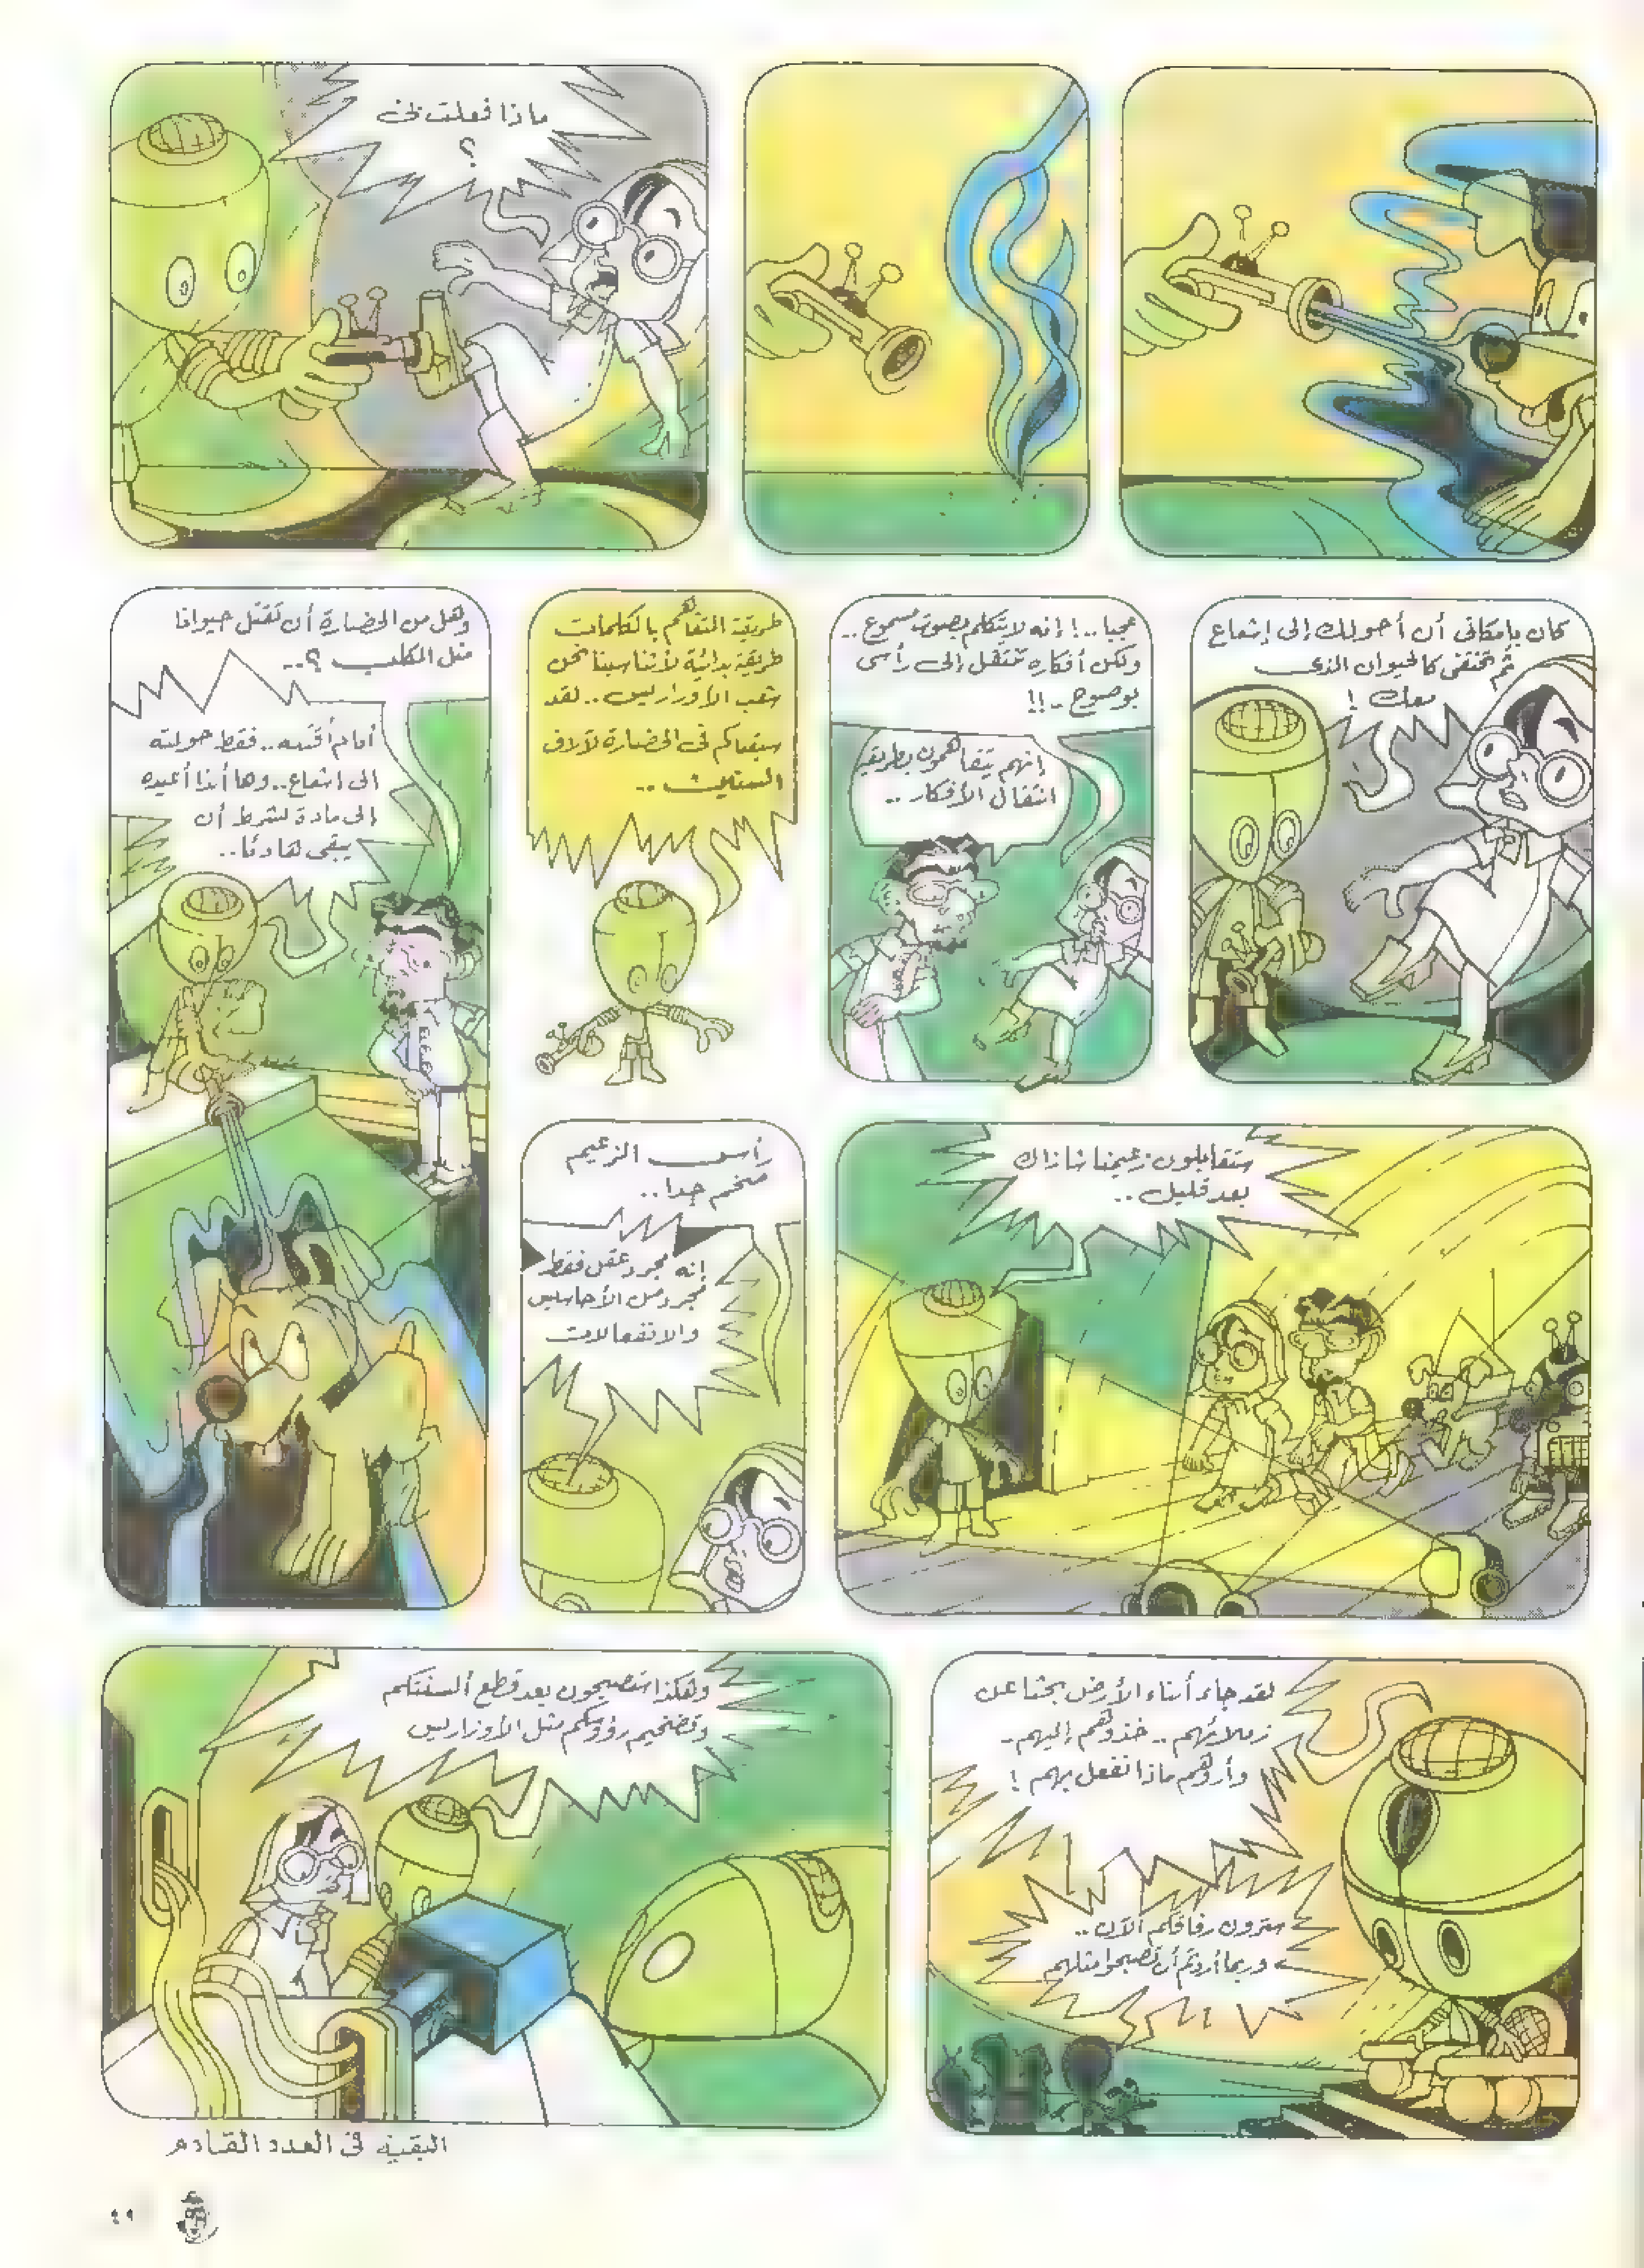 ماذا فعلت في
؟
كان بإمكاني أن أحولك إلى إشعاع
ثم تختفى كالحيوان الذى
معك !
عجبا..! إنه لا يتكلم بصوت مسموع ..
ولكن أفكاره تنتقل إلى رأسى
بوضوح ..!!
إنهم يتفاهمون بطريقة
انتقال الأفكار ..
طريقة التفاهم بالكلمات
طريقة بدائية لا تناسبنا نحن
شعب الأوزاريس .. لقد
سبقناكم فى الحضارة لآلاف
السنين ..
وهل من الحضارة أن تقتل حيوانا
مثل الكلب ؟..
أنا لم أقتله .. فقط حولته
إلى اشعاع .. وها أنذا أعيده
إلى مادة بشرط أن
يبقى هادئا ..
ستقابلون زعيمنا شازاك
بعد قليل ..
رأس الزعيم
ضخم جدا ..
إنه مجرد عقل فقط
مجرد من الأحاسيس
والانفعالات
لقد جاء أبناء الأرض بحثا عن
زملائهم .. خذوهم إليهم ..
وأروهم ماذا نفعل بهم !
سترون رفاقكم الآن ..
وربما أردتم أن تصبحوا مثلهم
وهكذا ستصبحون بعد قطع ألسنتكم
وتضخيم رؤوسكم مثل الأوزاريس
البقية فى العدد القادم
٤٩